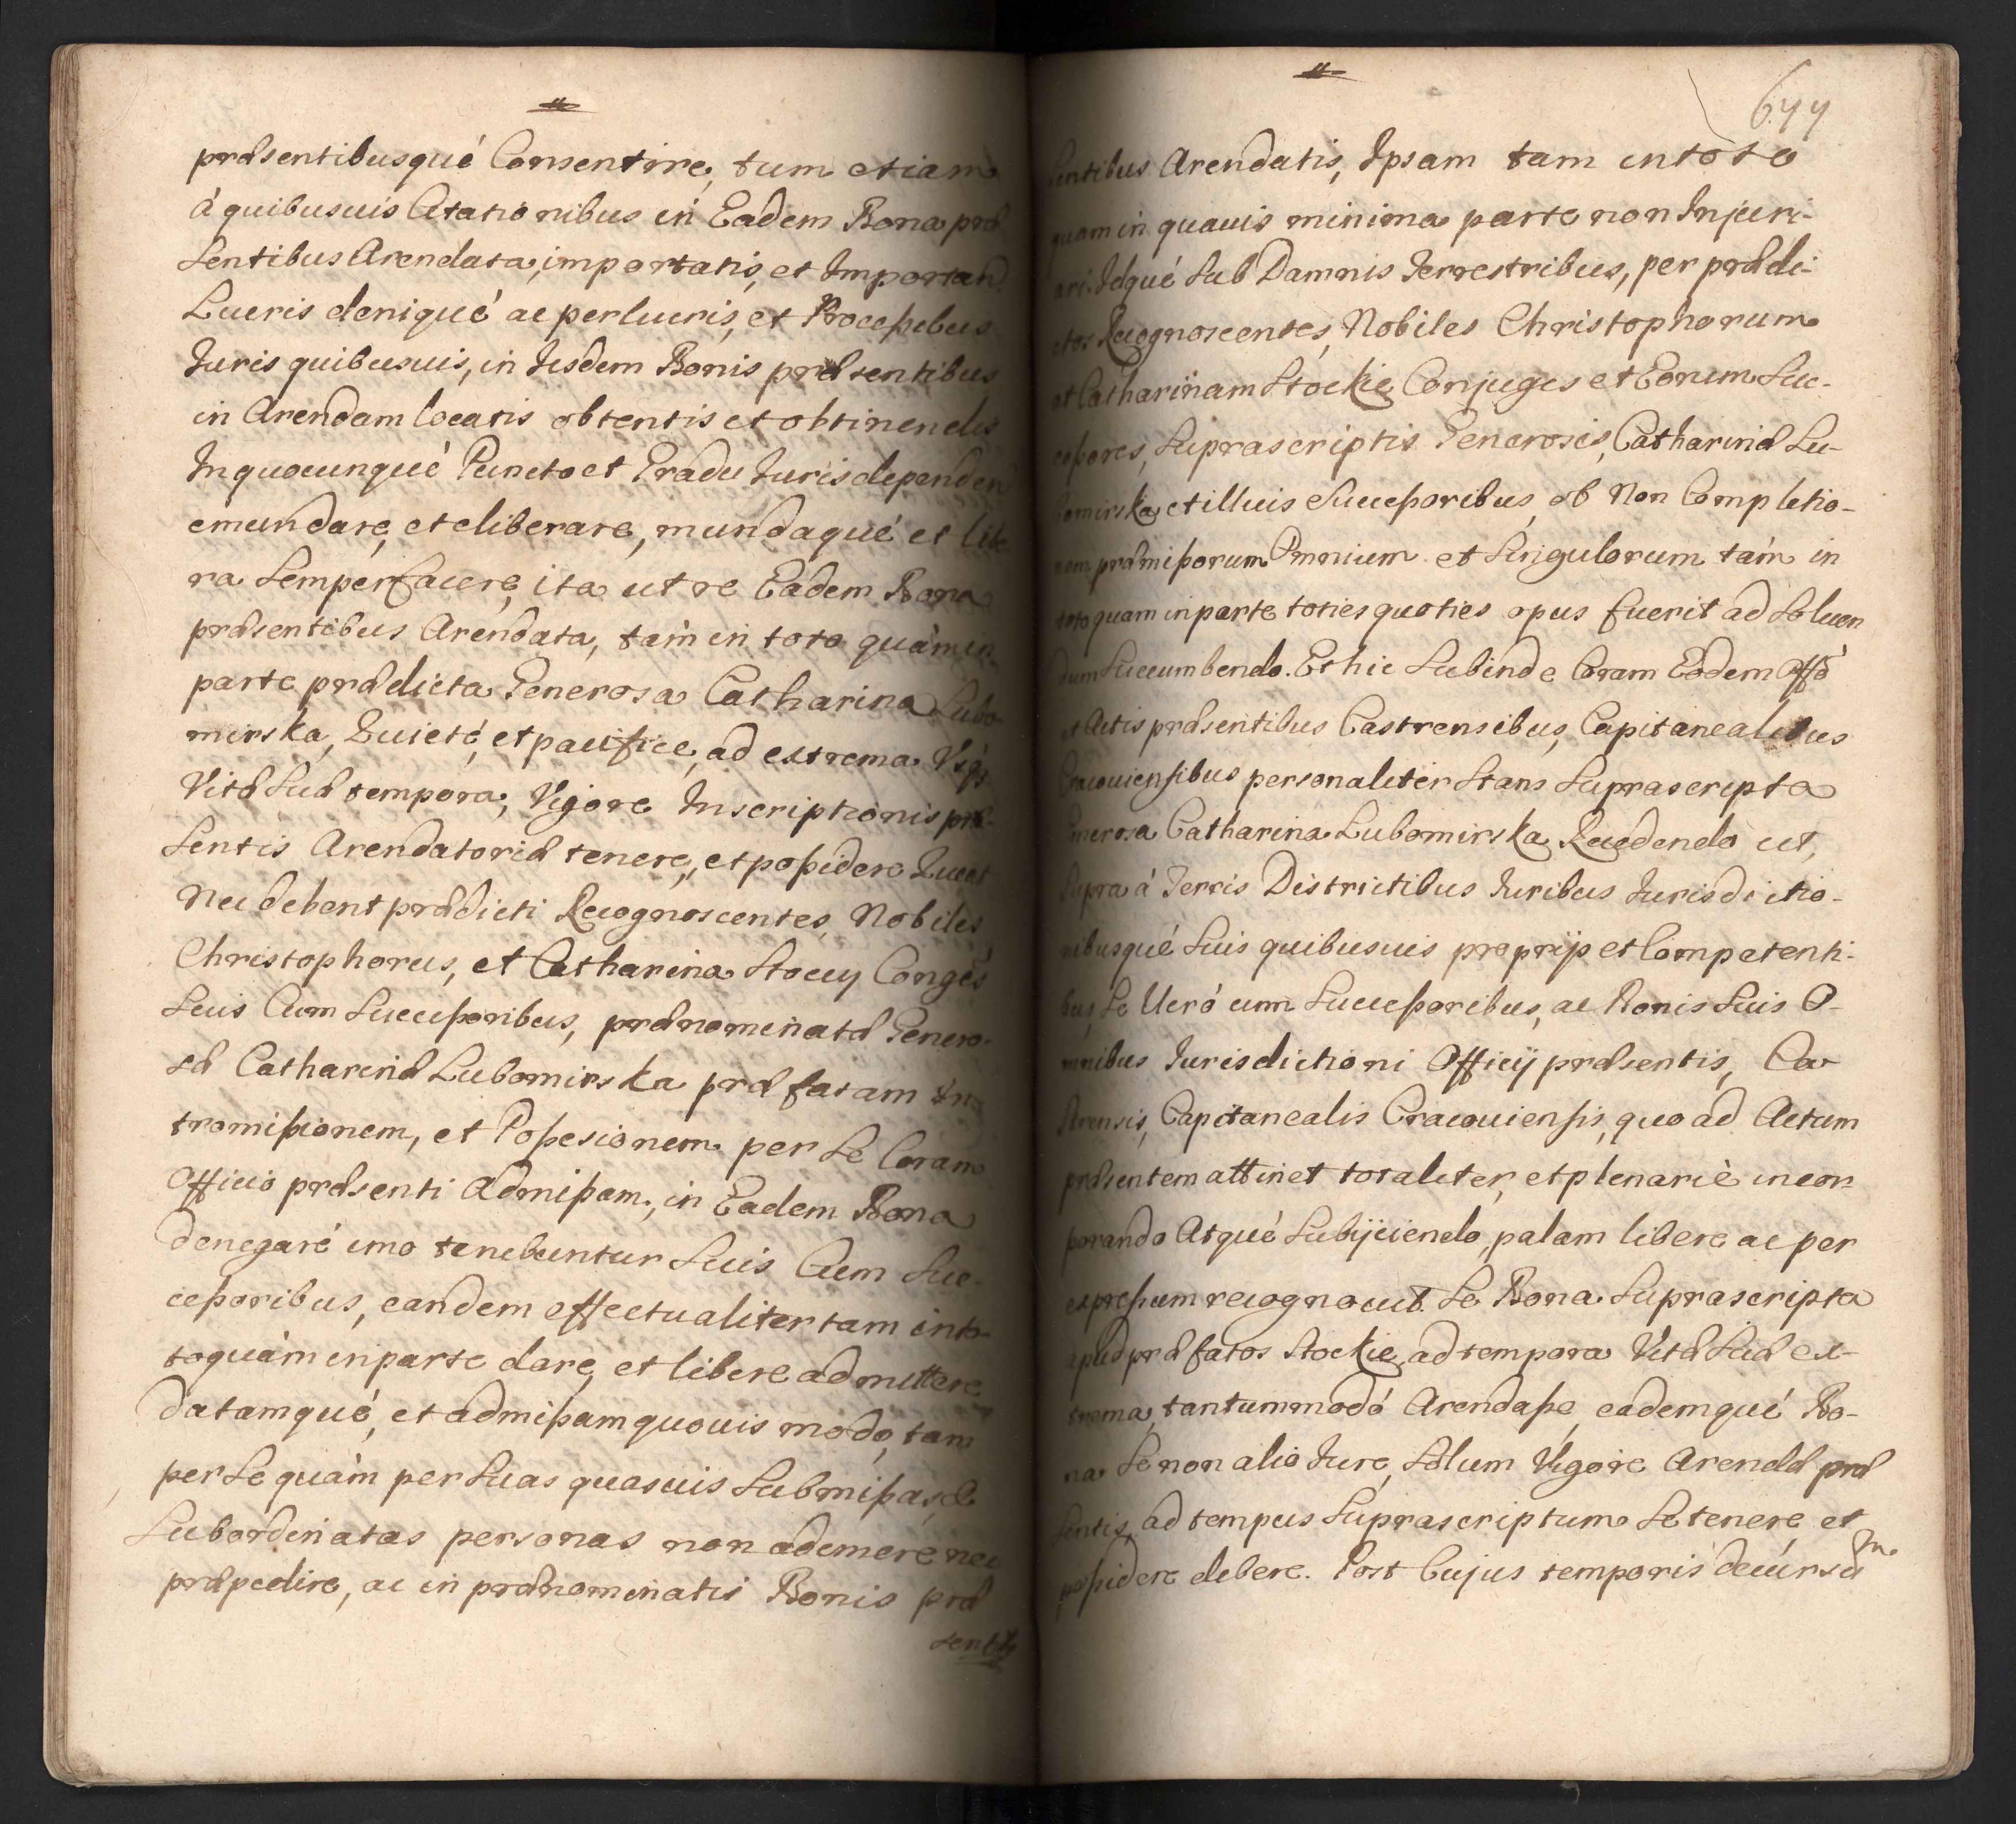 præsentibusqué Consentire, tum etiam
á quibusuis Citationibus in Eadem Bona præ
sentibus Arendata, importatis, et Importan
Lucris deniqué ac perlucris, et Processibus
Iuris quibusuis, in Iisdem Bonis præsentibus
in Arendam locatis obtentis et obtinendis
Inquocunqué Puncto et Gradu Iuris dependen
emundare, et eliberare, mundaqué et libe
ra Semper facere, ita ut re Eadem Bona
præsentibus Arendata, tàm in toto quàm in
parte prædicta Generosa Catharina Lubo
mirska, Quieté, et pacifice, ad extrema Usqꝫ
Vitæ Suæ tempora, Vigore Inscriptionis præ-
Sentis Arendatoriæ tenere, et possidere Queat
Nec debent prædicti Recognoscentes, Nobiles
Christophorus, et Catharina Stoccy Conges
Suis Cum Successoribus, prænominatæ Genero-
sæ Catharinæ Lubomirska præfatam In-
tromissionem, et Possesionem per Se Coram
Officio præsenti Admissam, in Eadem Bona
denegaré imo tenebuntur Suis Cum Suc-
cessoribus, eandem effectualiter tam into-
to quàm in parte dare, et libere admittere
datamqué, et admissam quouis modo, tam
per Se quàm per Suas quasuis Submissas, &
Subordinatas personas non ademere nec
præpedire, ac in prænominatis Bonis præ
sentibꝫ
644
sentibus Arendatis, Ipsam tam in toto
quam in quauis minima parte non Injuri-
ari. Idqué Sub Damnis Terrestribus, per prædi-
ctos Recognoscentes, Nobiles Christophorum
et Catharinam Stockie Conjuges et Eorum Suc-
cessores, Suprascriptis Generosis, Catharinæ Lu-
bomirska et illius Successoribus, ob Non Completio-
nem præmissorum Omnium et Singulorum tàm in
toto quam in parte toties quoties opus fuerit ad Soluen
dum Succumbendo. Et hic Subinde Coram Eodem Offo
et Actis præsentibus Castrensibus, Capitanealibus
Cracouiensibus personaliter Stans Suprascripta
Generosa Catharina Lubomirska Recedendo ut,
Supra á Terris Districtibus Iuribus Iurisdictio-
nibusqué Suis quibusuis proprijs et Competenti-
bus, Se Veró cum Successoribus, ac Bonis Suis O-
mnibus Iurisdictioni Officij præsentis, Ca-
strensis, Capitanealis Cracouiensis, quo ad Actum
præsentem attinet totaliter, et plenariè incor-
porando Atqué Subijciendo, palam libere ac per
expressum recognouit. Se Bona Suprascripta
apud præfatos Stockie, ad tempora Vitæ Suæ ex-
trema, tantummodó Arendasse, eademqué Bo-
na Se non alio Iure, Solum Vigore Arendæ præ
sentis, ad tempus Suprascriptum Se tenere, et
possidere debere. Post Cujus temporis decúrsu
m